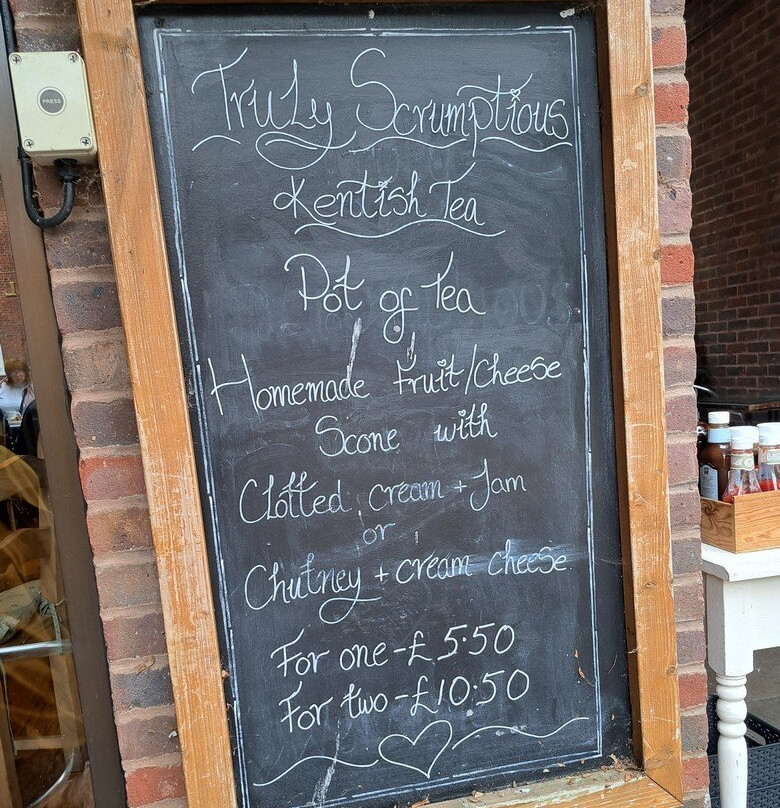 PRESS
Truly Scrumptious
Kentish Tea
Pot of Tea
Homemade Fruit/Cheese
Scone with
Clotted cream + Jam
or
Chutney + cream cheese
For one - £5.50
For two - £10.50